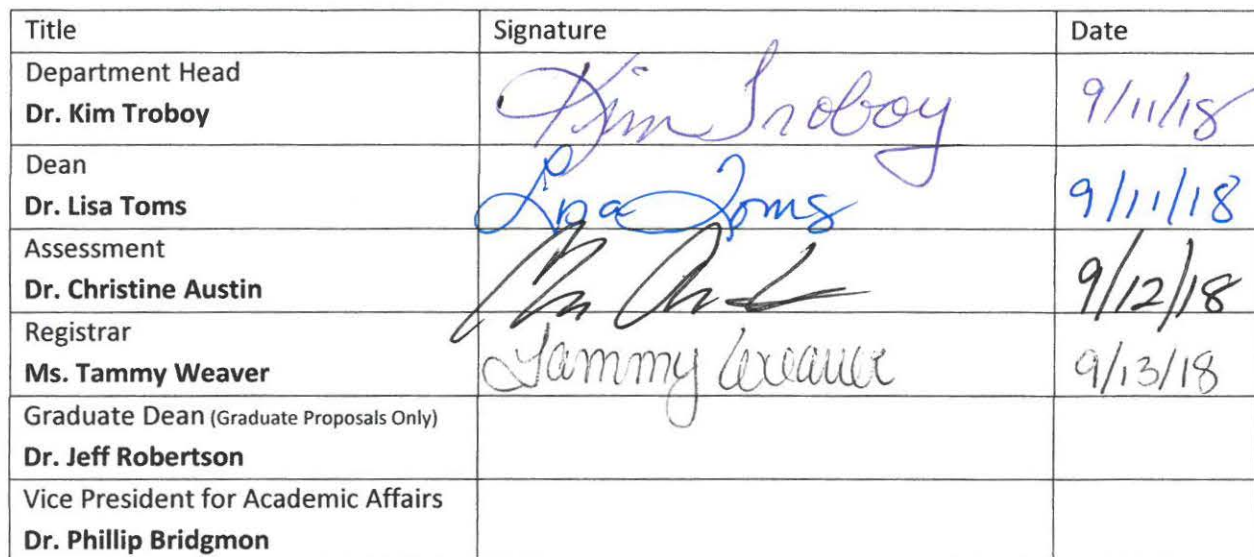 Title Signature Date
Department Head
Dr. Kim Troboy Kim Troboy 9/11/18
Dean
Dr. Lisa Toms Lisa Toms 9/11/18
Assessment
Dr. Christine Austin 9/12/18
Registrar
Ms. Tammy Weaver Tammy Weaver 9/13/18
Graduate Dean (Graduate Proposals Only)
Dr. Jeff Robertson
Vice President for Academic Affairs
Dr. Phillip Bridgmon